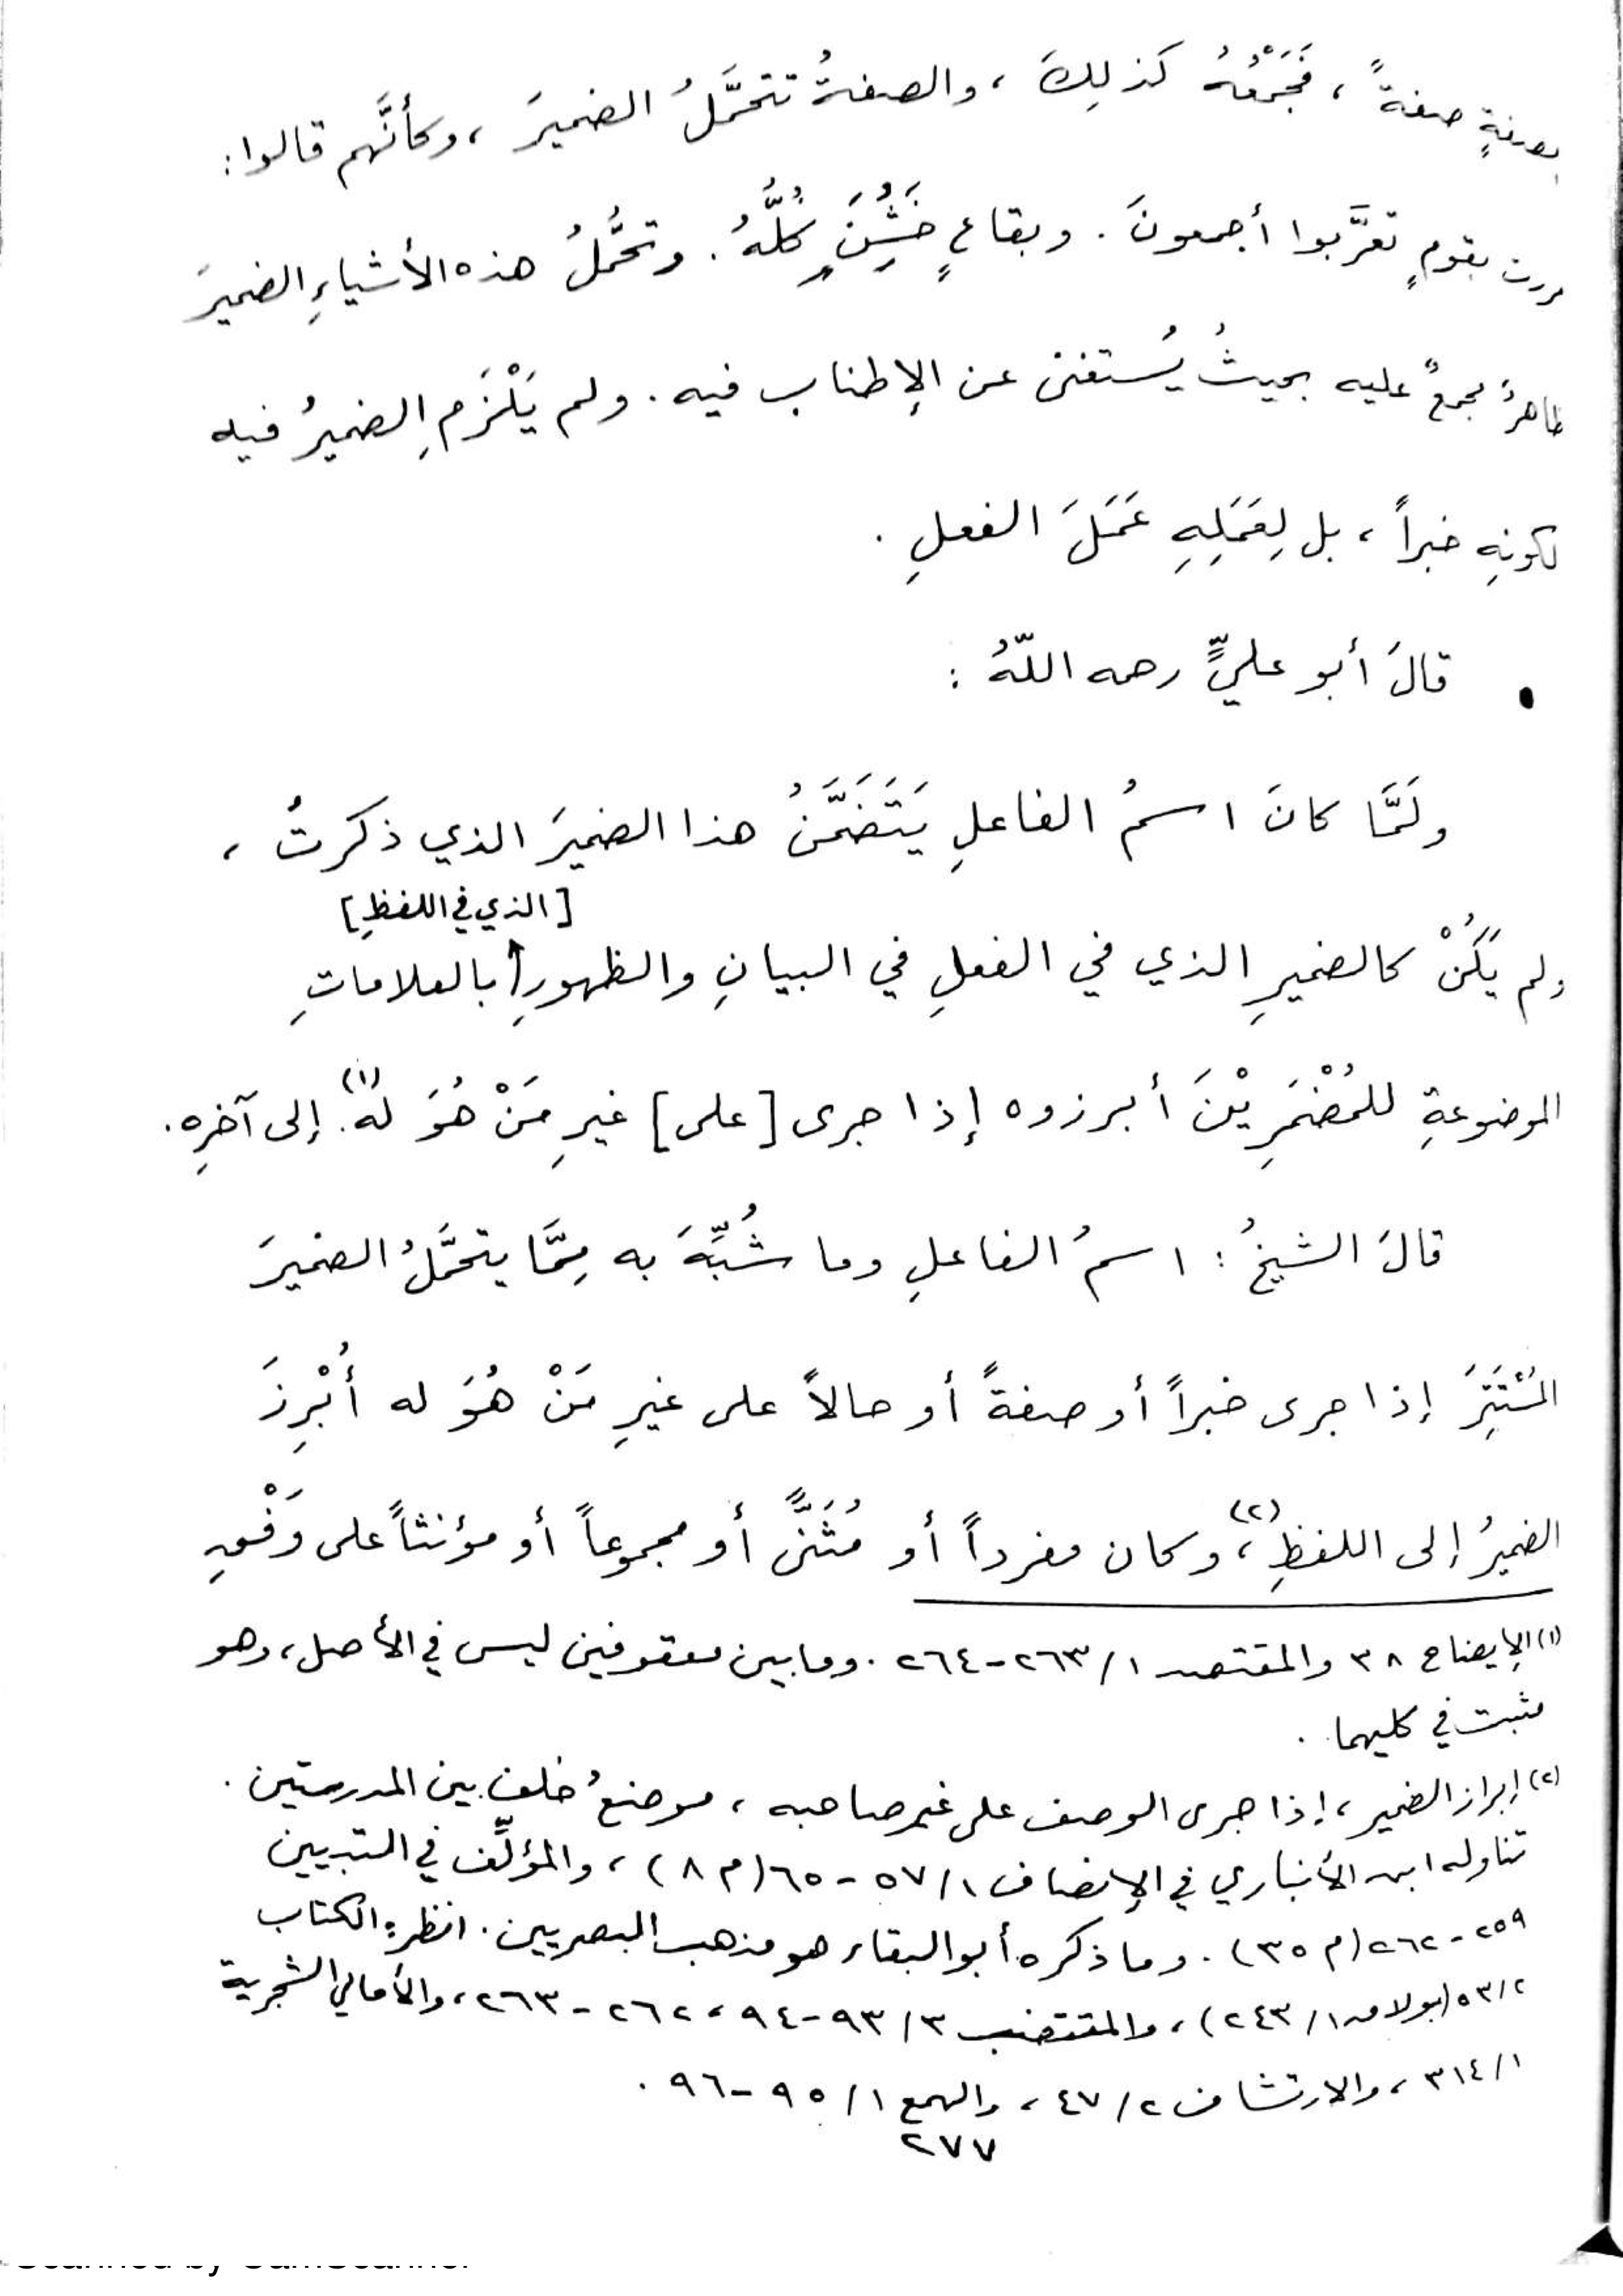 بصفةٍ صفةً ، فَجَمْعُهُ كذلِكَ ، والصفةُ تتحمَّلُ الضميرَ ، وكأنَّهم قالوا :
مررت بقومٍ تعرَّبوا أجمعونَ . وبقاعٍ خَشُنَ كُلُّهُ . وتحمُّلُ هذه الأشياءِ الضميرَ
ظاهرٌ مجمعٌ عليه بحيثُ يُستغنى عن الإطناب فيه . ولم يَلْزَمِ الضميرُ فيه
لكونِهِ خبراً ، بل لِعَمَلِهِ عَمَلَ الفعلِ .
• قالَ أبو عليٍّ رحمه اللّهُ :
ولَمَّا كانَ اسمُ الفاعلِ يَتَضَمَّنُ هذا الضميرَ الذي ذكرتُ ،
[الذي في اللفظِ]
ولم يَكُنْ كالضميرِ الذي في الفعلِ في البيانِ والظهورِ بالعلاماتِ
الموضوعةِ للمُضْمَرِيْنَ أبرزوه إذا جرى [على] غيرِ مَنْ هُوَ لهُ(١). إلى آخرِه .
قالَ الشيخُ : اسمُ الفاعلِ وما شُبِّهَ به مِمَّا يتحمَّلُ الضميرَ
المُسْتَتِرَ إذا جرى خبراً أو صفةً أو حالاً على غيرِ مَنْ هُوَ له أُبْرِزَ
الضميرُ إلى اللفظِ(٢)، وكان مفرداً أو مُثَنًّى أو مجموعاً أو مؤنثاً على وَفْقِهِ
(١) الإيضاح ٣٨ والمقتصد ١/ ٢٦٣-٢٦٤ . وما بين معقوفين ليس في الأصل ، وهو
مثبت في كليهما .
(٢) إبراز الضمير ، إذا جرى الوصف على غير صاحبه ، موضعُ خلف بين المدرستين .
تناوله ابن الأنباري في الإنصاف ١/ ٥٧-٦٥ (م ٨) ، والمؤلِّف في التبيين
٢٥٩-٢٦٢ (م ٣٥) . وما ذكره أبو البقاء هو مذهب البصريين . انظر: الكتاب
٢/ ٥٣ (بولاق ١/ ٢٤٣) ، والمقتضب ٣/ ٩٣-٩٤ ، ٢٦٢-٢٦٣ ، والأمالي الشجرية
١/ ٣١٤ ، والارتشاف ٢/ ٤٧ ، والهمع ١/ ٩٥-٩٦ .
٢٧٧